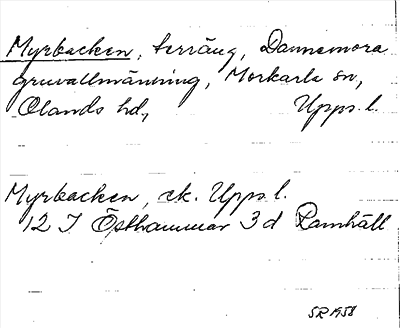 Myrbacken, terräng, Dannemora
gruvallmänning, Morkarla sn,
Olands hd, Upps. l.
Myrbacken, ek. Upps. l.
12 I Östhammar 3 d Ramhäll
SR 1958